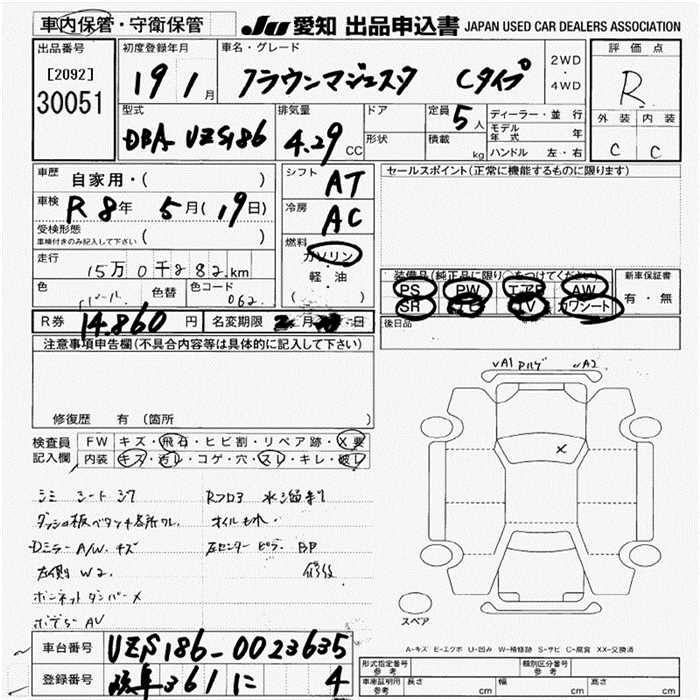 車内保管・守衛保管
JU 愛知 出品申込書 JAPAN USED CAR DEALERS ASSOCIATION
出品番号
[2092]
30051
初度登録年月
19 1月
車名・グレード
クラウンマジェスタ Cタイプ
2WD・4WD
評価点
R
外装 内装
C C
型式
DBA UZS186
排気量
4.29 CC
ドア
形状
定員
5人
積載 kg
ディーラー・並行
モデル年式 年
ハンドル 左・右
車歴
自家用・( )
車検
R8年 5月(19日)
受検形態
車検付きのみ記入して下さい ( )
走行
15万0千282km
色
色替
色コード
062
シフト
AT
冷房
AC
燃料
ガソリン
軽・油
( )
セールスポイント(正常に機能するものに限ります)
装備品(純正品に限り○をつけてください)
PS PW エアB AW
SR ナビ TV カワシート
新車保証書
有・無
後日品
R券 14,860円
名変期限 月 日
注意事項申告欄(不具合内容等は具体的に記入して下さい)
修復歴 有(箇所 )
検査員記入欄
FW キズ・飛石・ヒビ割・リペア跡・X要
内装 キズ・汚レ・コゲ・穴・スレ・キレ・破レ
シミ シート スレ
Rフロア 水溜有り
オイルもれ
DミラーA/W キズ
左センターピラー BP
修後
左右側 W2
ボンネットダンパーX
A1 A2
X
スペア
A-キズ E-エクボ U-凹み W-補修跡 S-サビ C-腐食 XX-交換済
車台番号 UZS186-0023635
登録番号 361 に 4
型式指定番号 参考
類別区分番号 参考
車庫証明用 参考
長さ cm
幅 cm
高さ cm